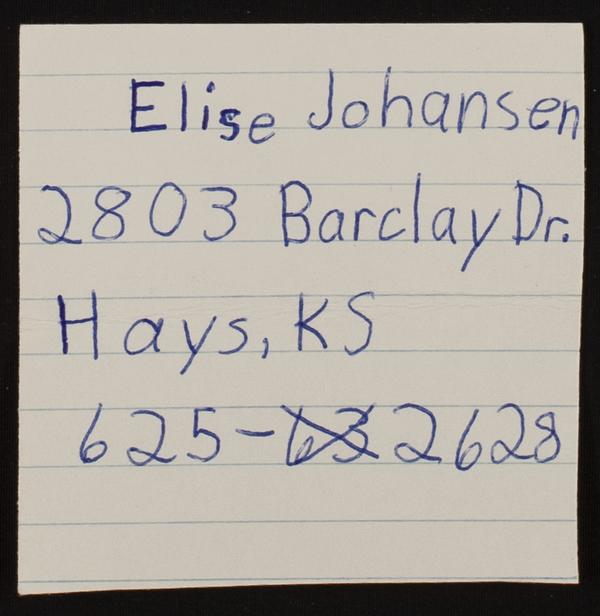 Elise Johansen
2803 Barclay Dr.
Hays, KS
625-2628